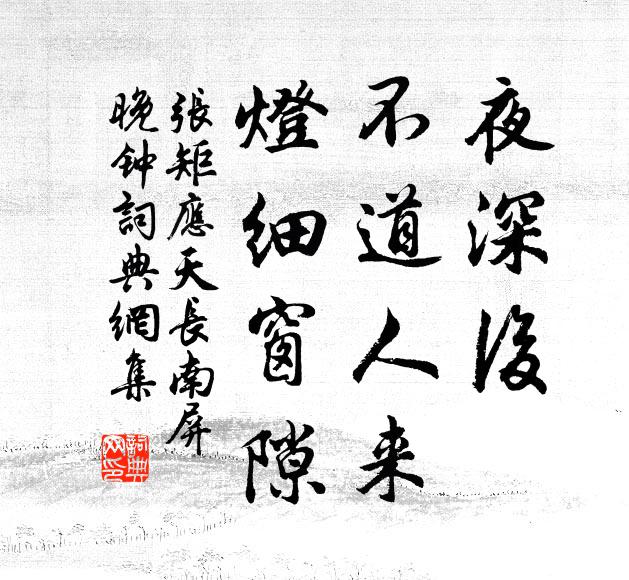 夜深後
不道人来
燈細窗隙
張矩應天長南屏
晚钟詞典網集
詞典
网印